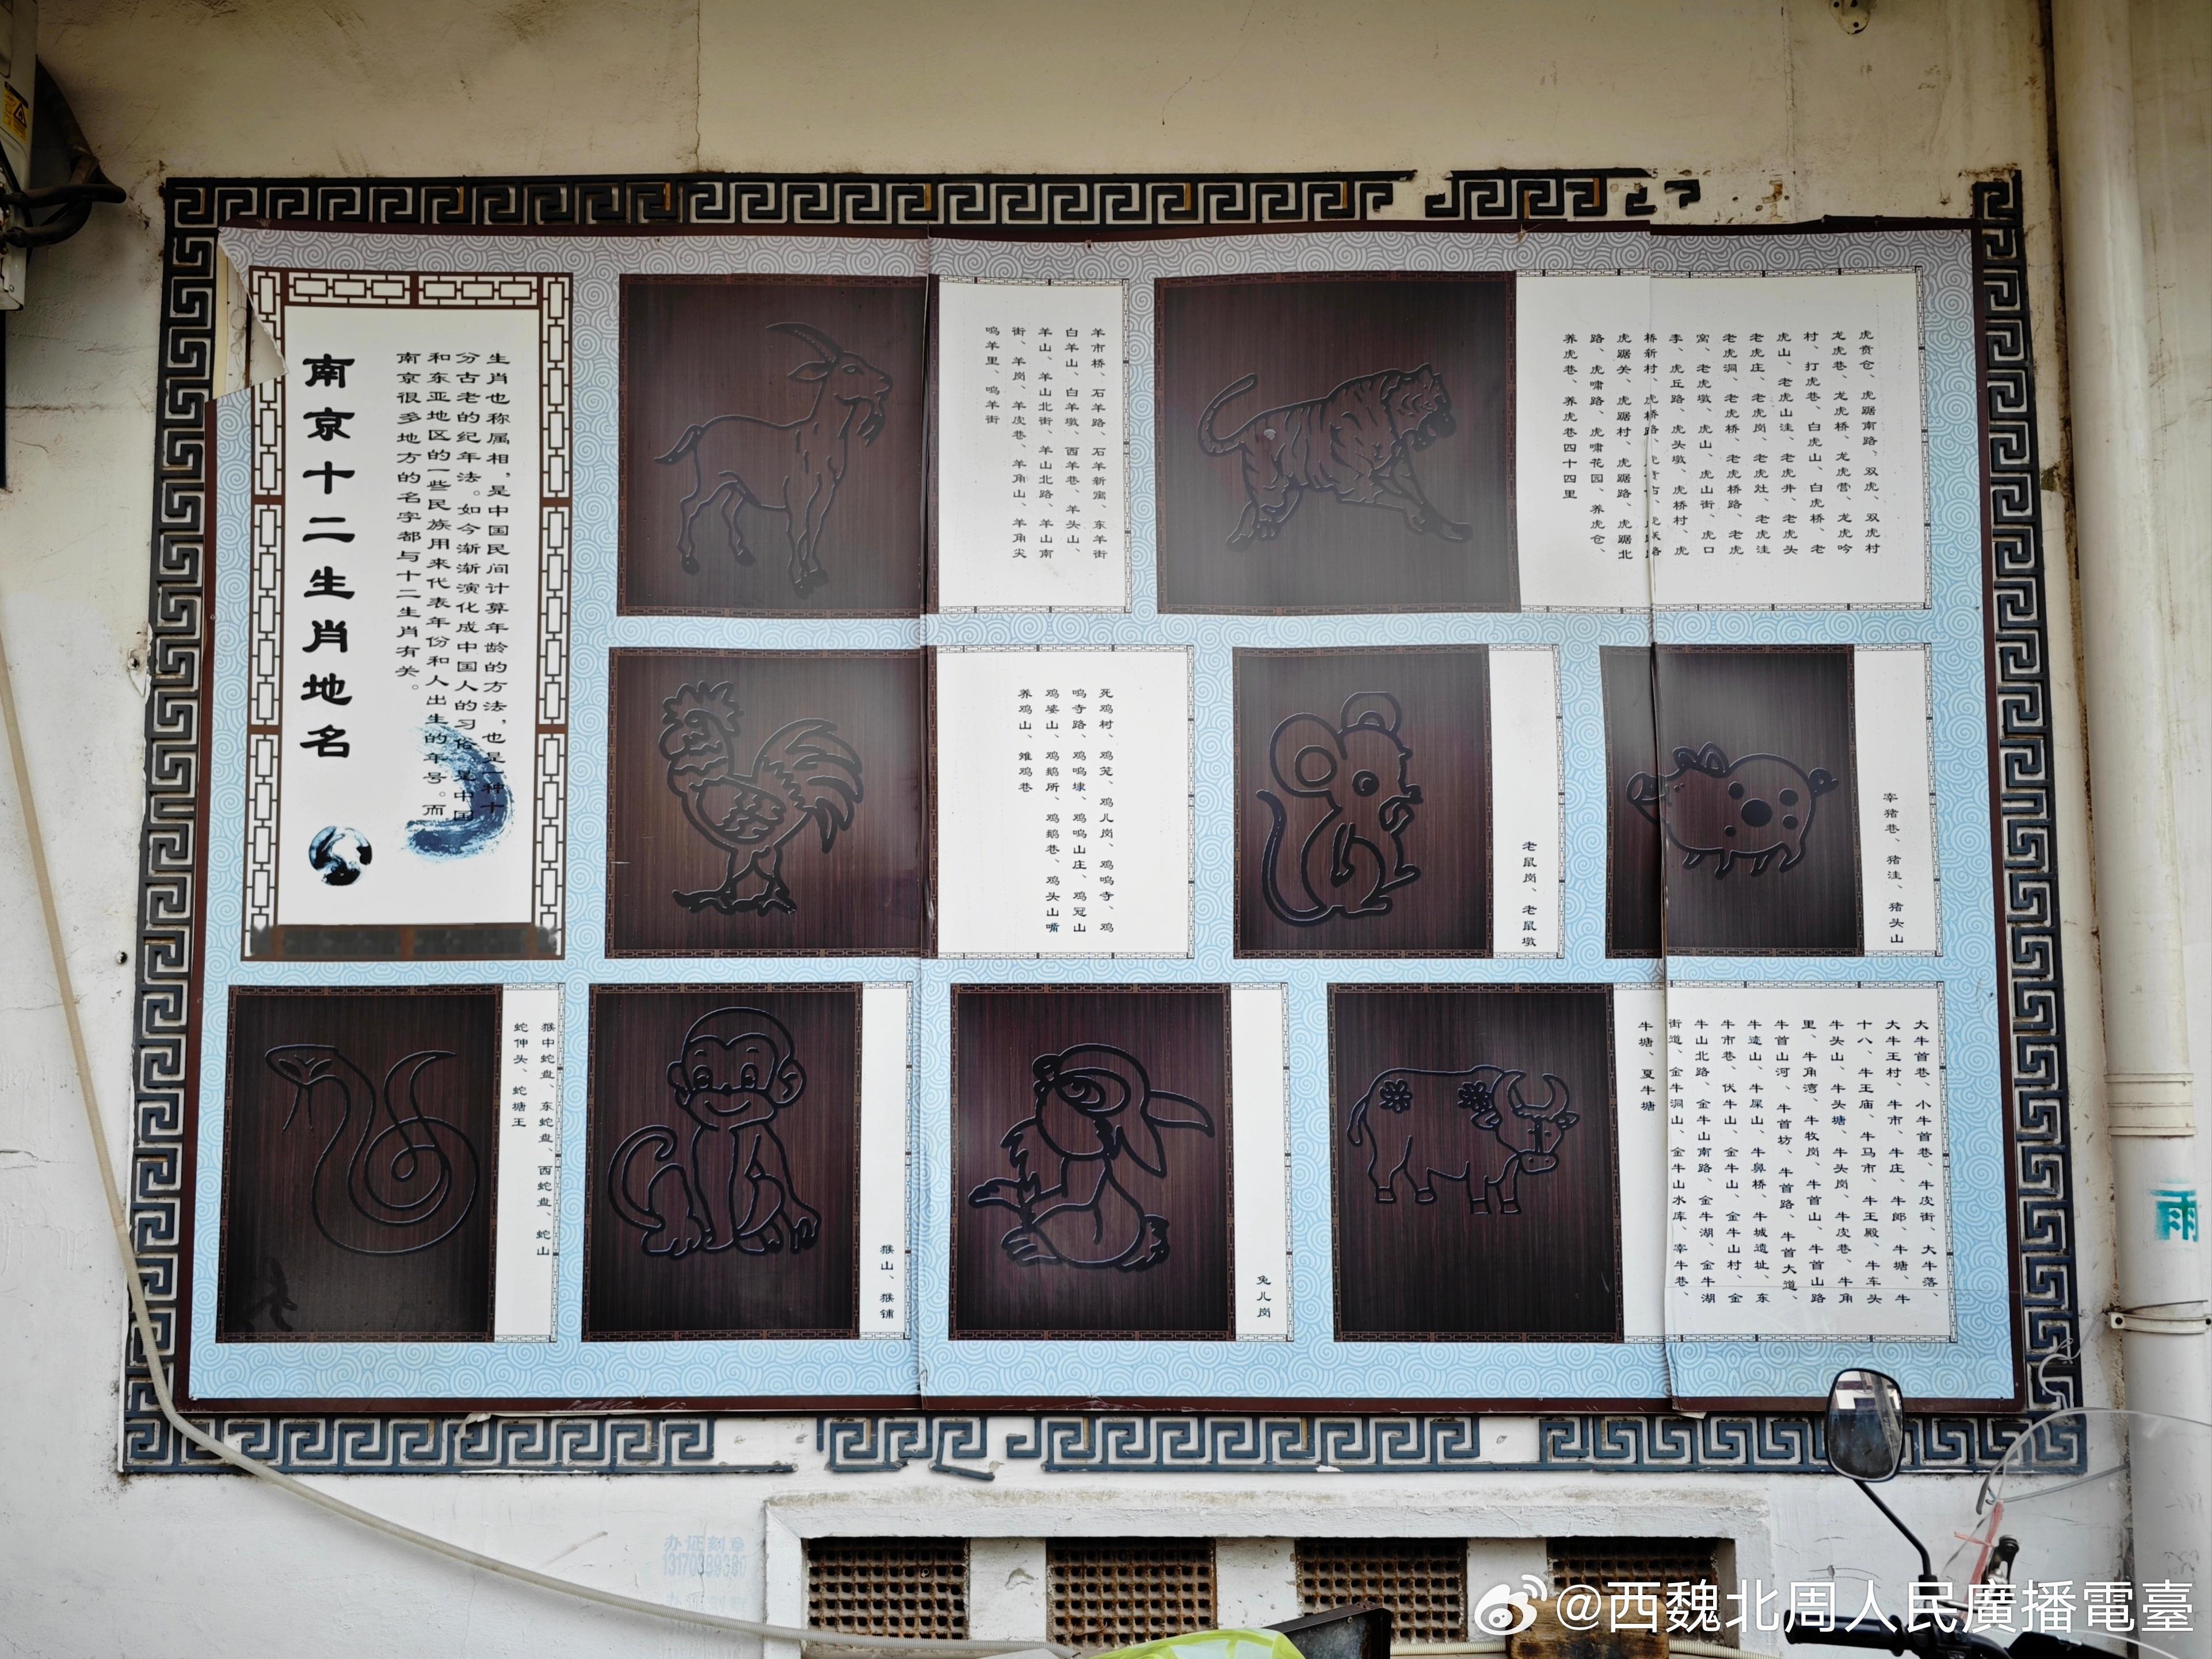 南京十二生肖地名
生肖也称属相，是中国民间计算年龄的方法，也是一种十
分古老的纪年法。如今渐渐演化成中国人的习俗，是中国
和东亚地区的一些民族用来代表年份和人出生的年号。而
南京很多地方的名字都与十二生肖有关。
羊市桥、石羊路、石羊新寓、东羊街
白羊山、白羊墩、西羊巷、羊头山、
羊山、羊山北街、羊山北路、羊山南
街、羊岗、羊皮巷、羊角山、羊角尖
鸣羊里、鸣羊街
虎贲仓、虎踞南路、双虎、双虎村
龙虎巷、龙虎桥、龙虎营、龙虎吟
村、打虎巷、白虎山、白虎桥、老
虎山、老虎山洼、老虎井、老虎头
老虎庄、老虎岗、老虎灶、老虎洼
老虎洞、老虎桥、老虎桥路、老虎
窝、老虎墩、虎山、虎山街、虎口
李、虎丘路、虎头墩、虎桥村、虎
桥新村、虎桥路、
虎踞关、虎踞村、虎踞路、虎踞北
路、虎啸路、虎啸花园、养虎仓、
养虎巷、养虎巷四十四里
死鸡树、鸡笼、鸡儿岗、鸡鸣寺、鸡
鸣寺路、鸡鸣埭、鸡鸣山庄、鸡冠山
鸡婆山、鸡鹅所、鸡鹅巷、鸡头山嘴
养鸡山、雉鸡巷
老鼠岗、老鼠墩
宰猪巷、猪洼、猪头山
猴中蛇盘、东蛇盘、西蛇盘、蛇山
蛇伸头、蛇塘王
猴山、猴铺
兔儿岗
大牛首巷、小牛首巷、牛皮街、大牛落、
大牛王村、牛市、牛庄、牛郎、牛塘、牛
十八、牛王庙、牛马市、牛王殿、牛车头
牛头山、牛头塘、牛头岗、牛皮巷、牛角
里、牛角湾、牛牧岗、牛首山、牛首山路
牛首山河、牛首坊、牛首路、牛首大道、
牛迹山、牛屎山、牛鼻桥、牛城遗址、东
牛市巷、伏牛山、金牛山、金牛山村、金
牛山北路、金牛山南路、金牛湖、金牛湖
街道、金牛洞山、金牛山水库、宰牛巷、
牛塘、夏牛塘
雨
办证刻章
@西魏北周人民廣播電臺